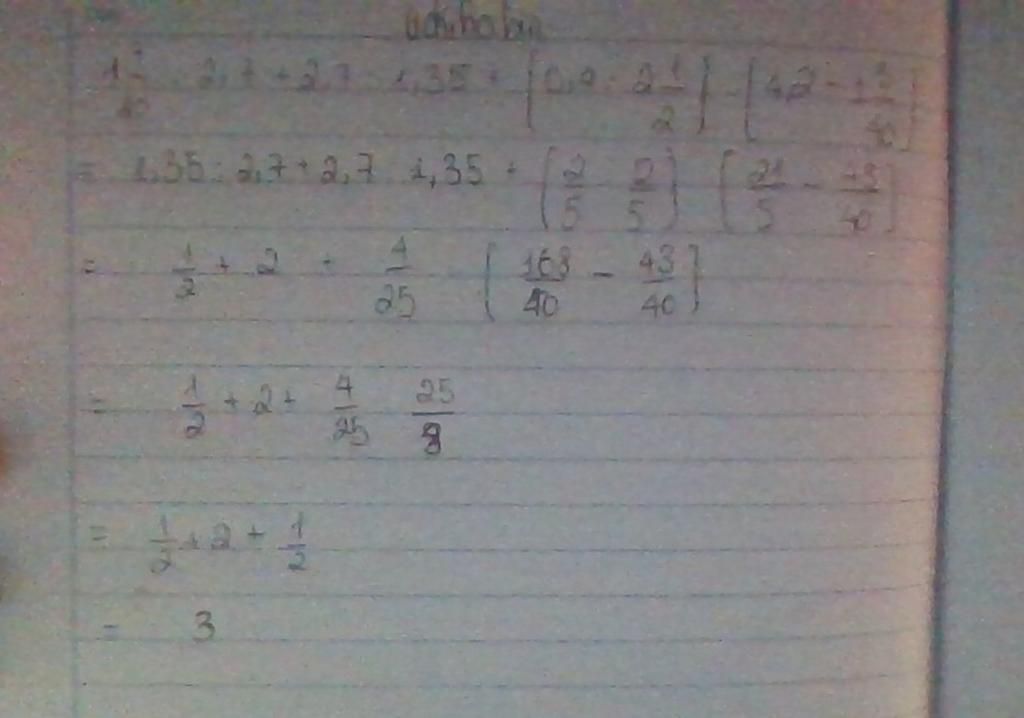 2,7 + 2,7 : 1,35 + (0,4 : 2 1/2) · (4,2 - 43/40)
= 1,35 : 2,7 + 2,7 : 1,35 + (2/5 · 2/5) · (21/5 - 43/40)
= 1/2 + 2 + 4/25 · (168/40 - 43/40)
= 1/2 + 2 + 4/25 · 25/8
= 1/2 + 2 + 1/2
= 3